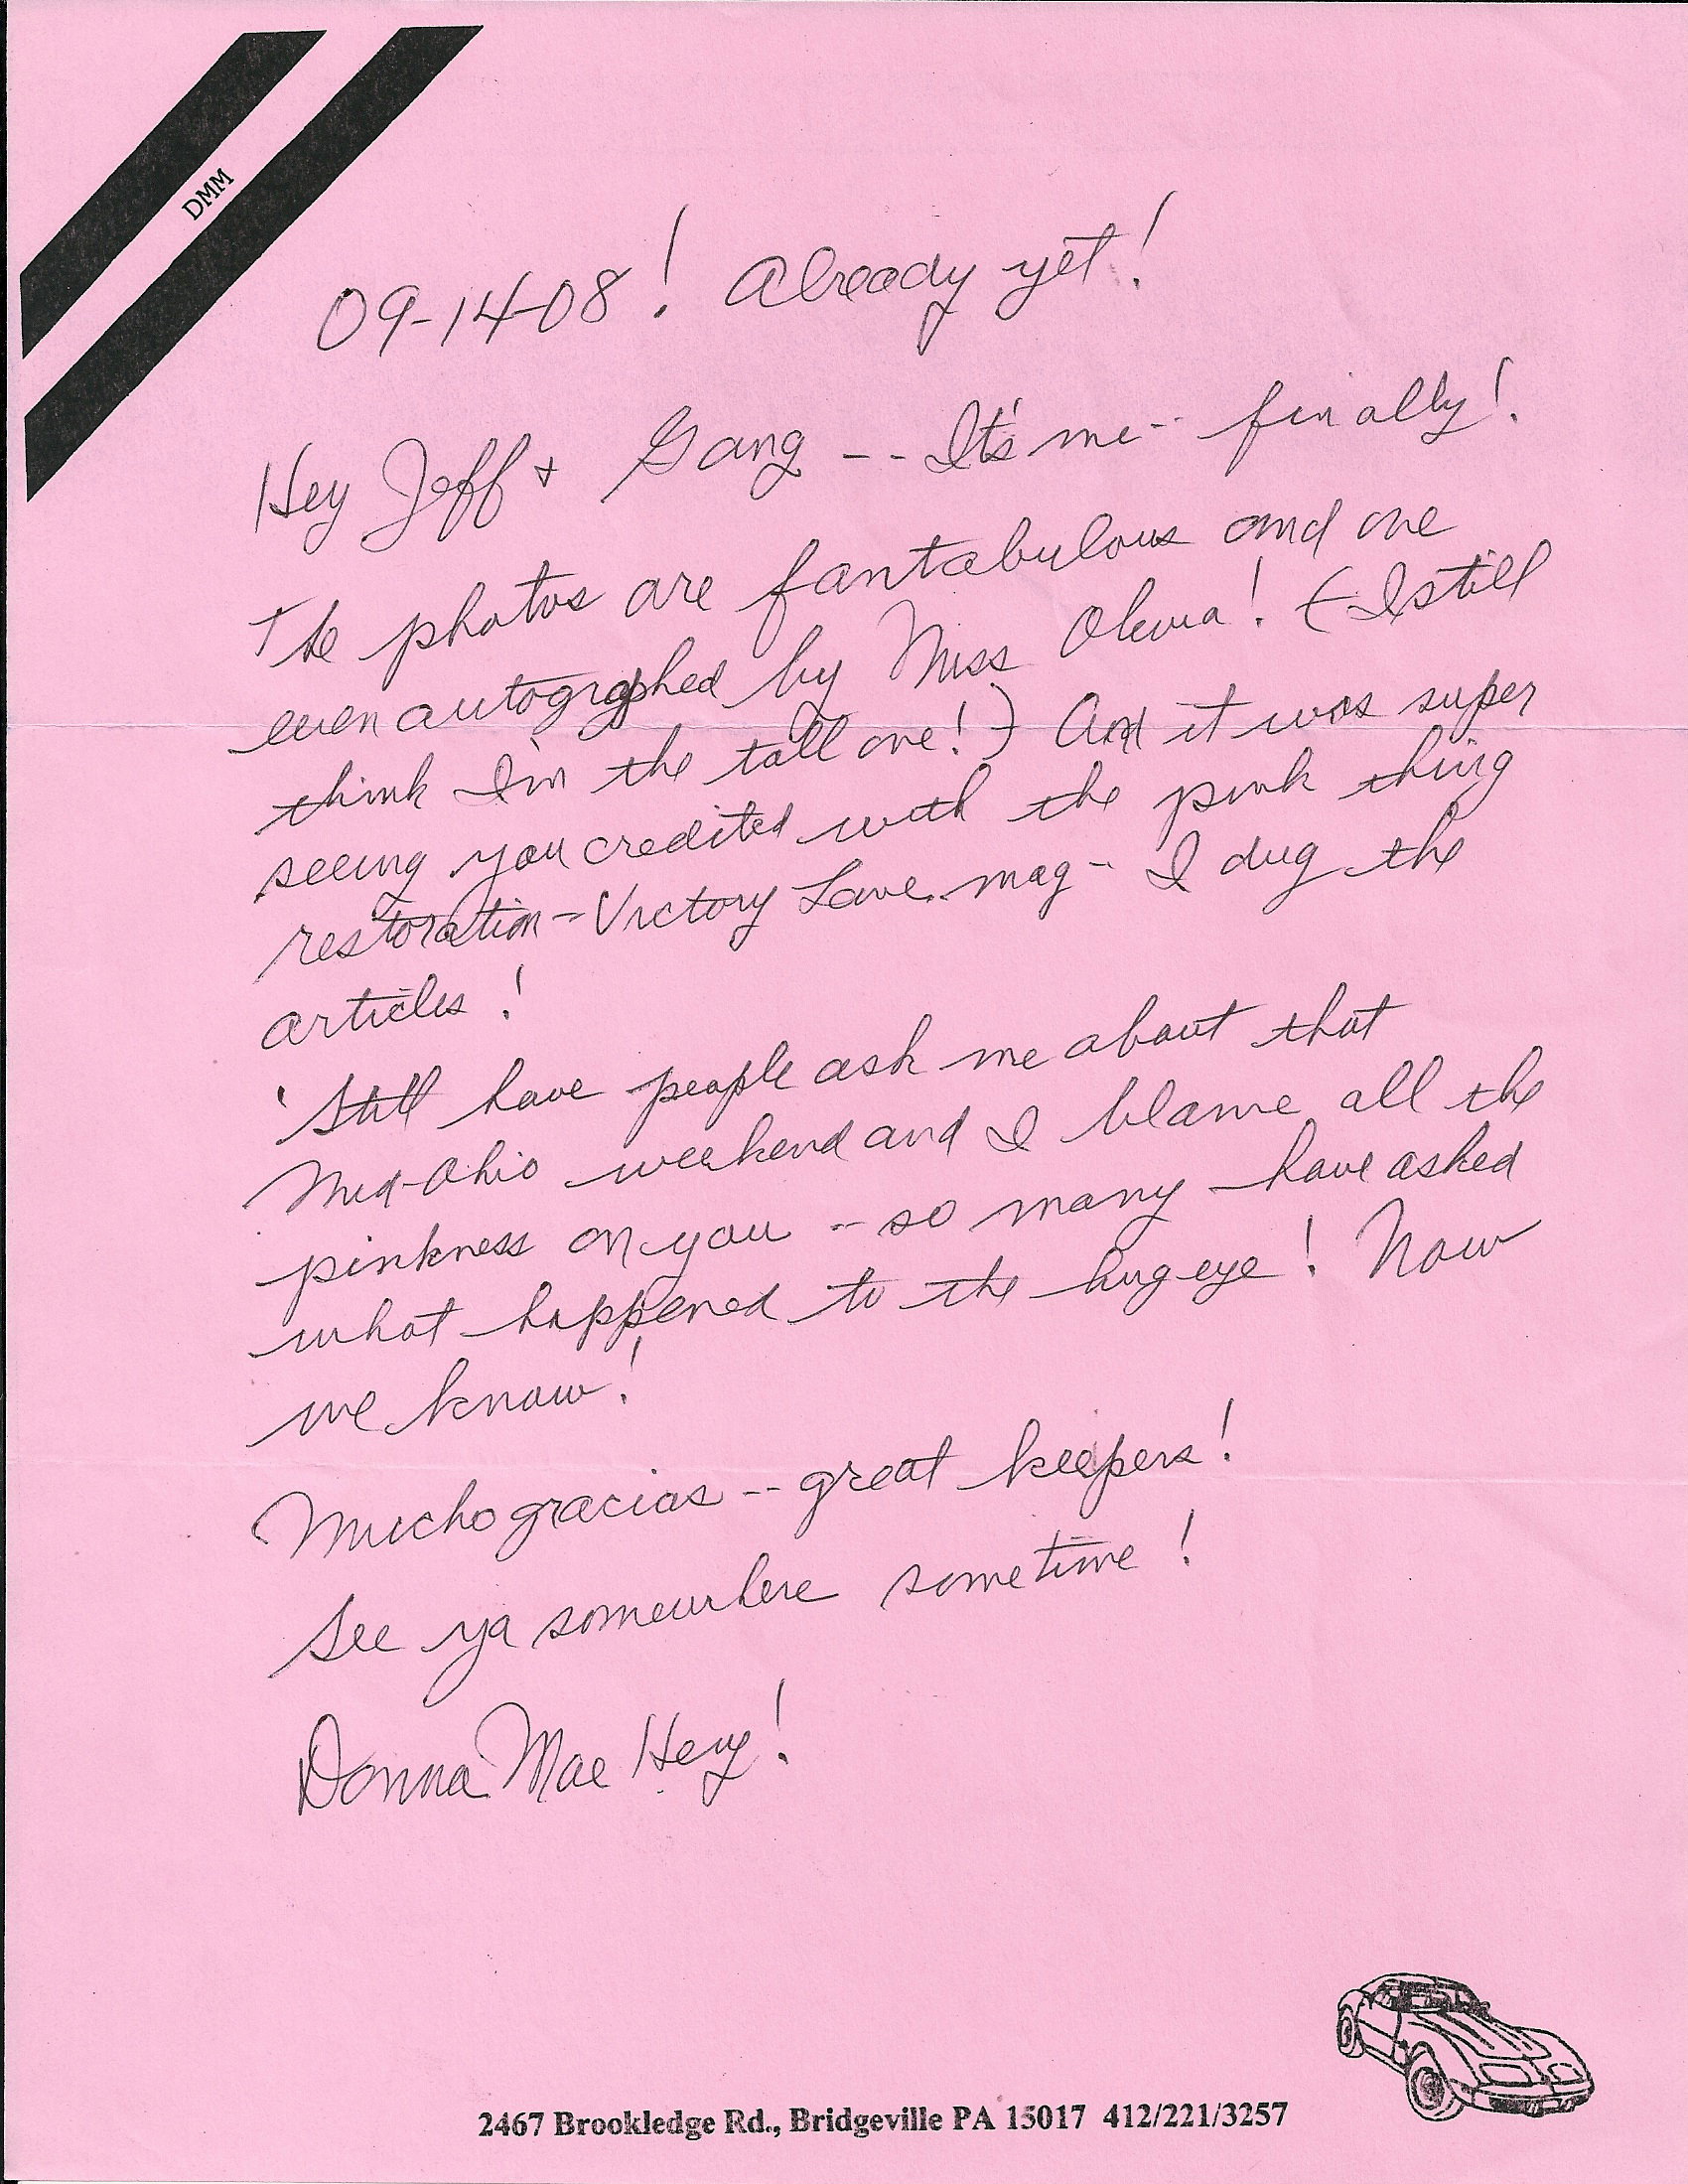 DMM
09-14-08! Already yet!
Hey Jeff + Gang -- It's me -- finally!
The photos are fantabulous and one
even autographed by Miss Olivia! (I still
think I'm the tall one!) And it was super
seeing you credited with the pink thing
restoration - Victory Lane mag - I dug the
articles!
'Still have people ask me about that
Mid-Ohio weekend and I blame all the
pinkness on you -- so many have asked
what happened to the bugeye! Now
we know!
Mucho gracias -- great keepers!
See ya somewhere sometime!
Donna Mae
2467 Brookledge Rd., Bridgeville PA 15017 412/221/3257